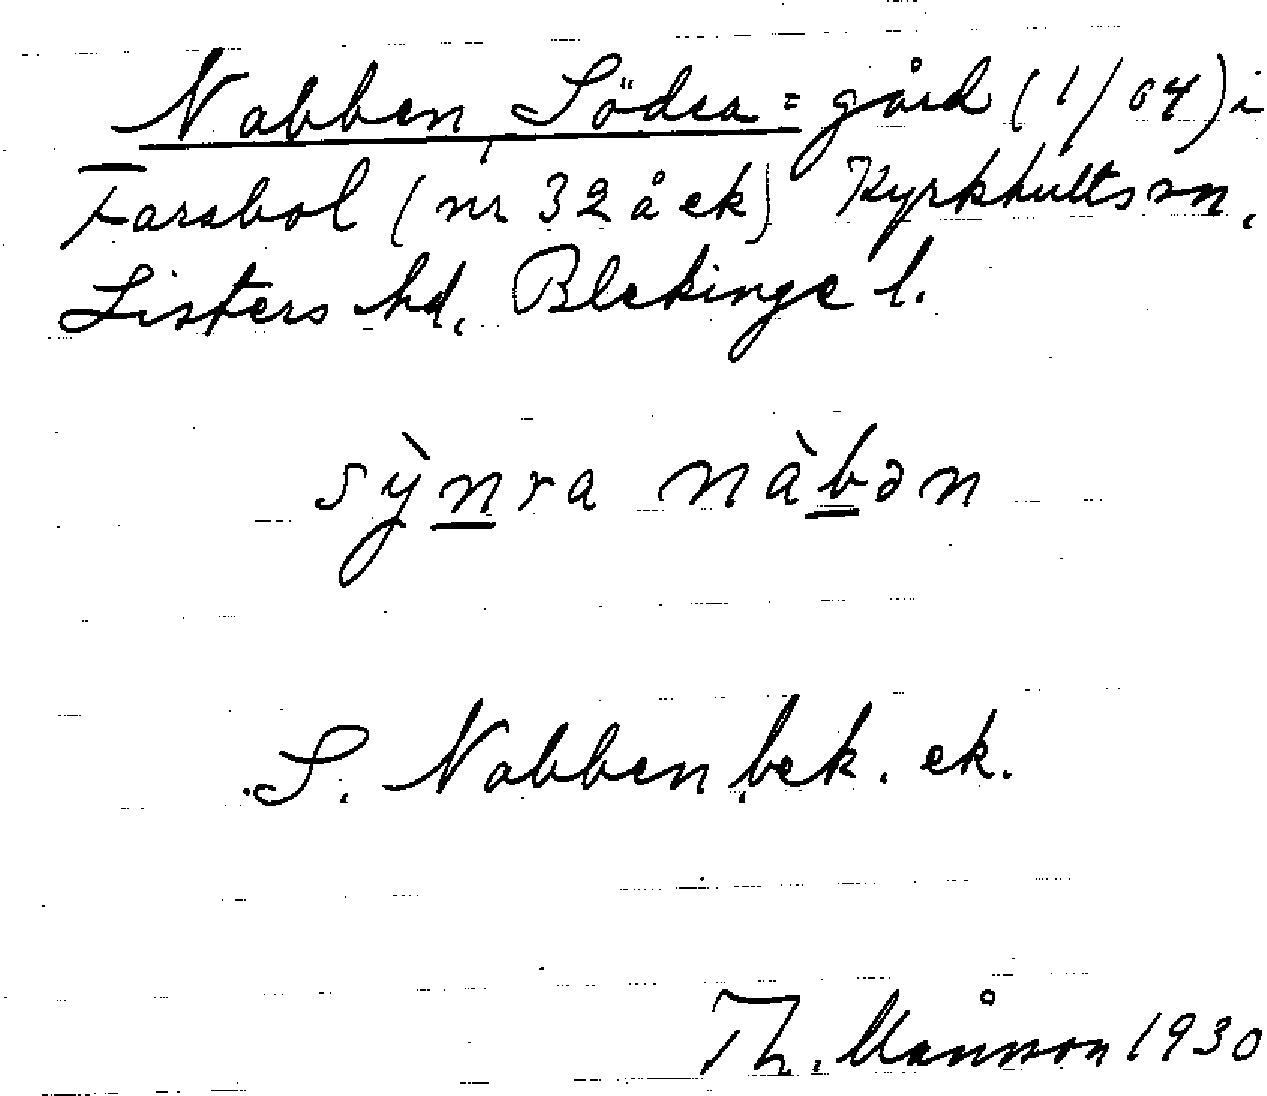 Nabben, Södra = gård (1/64) i
Farabol (nr 32 å ek) Kyrkhults sn,
Listers hd, Blekinge l.
sỳnra nàbən
S. Nabben, bek. ek.
Th. Månsson 1930